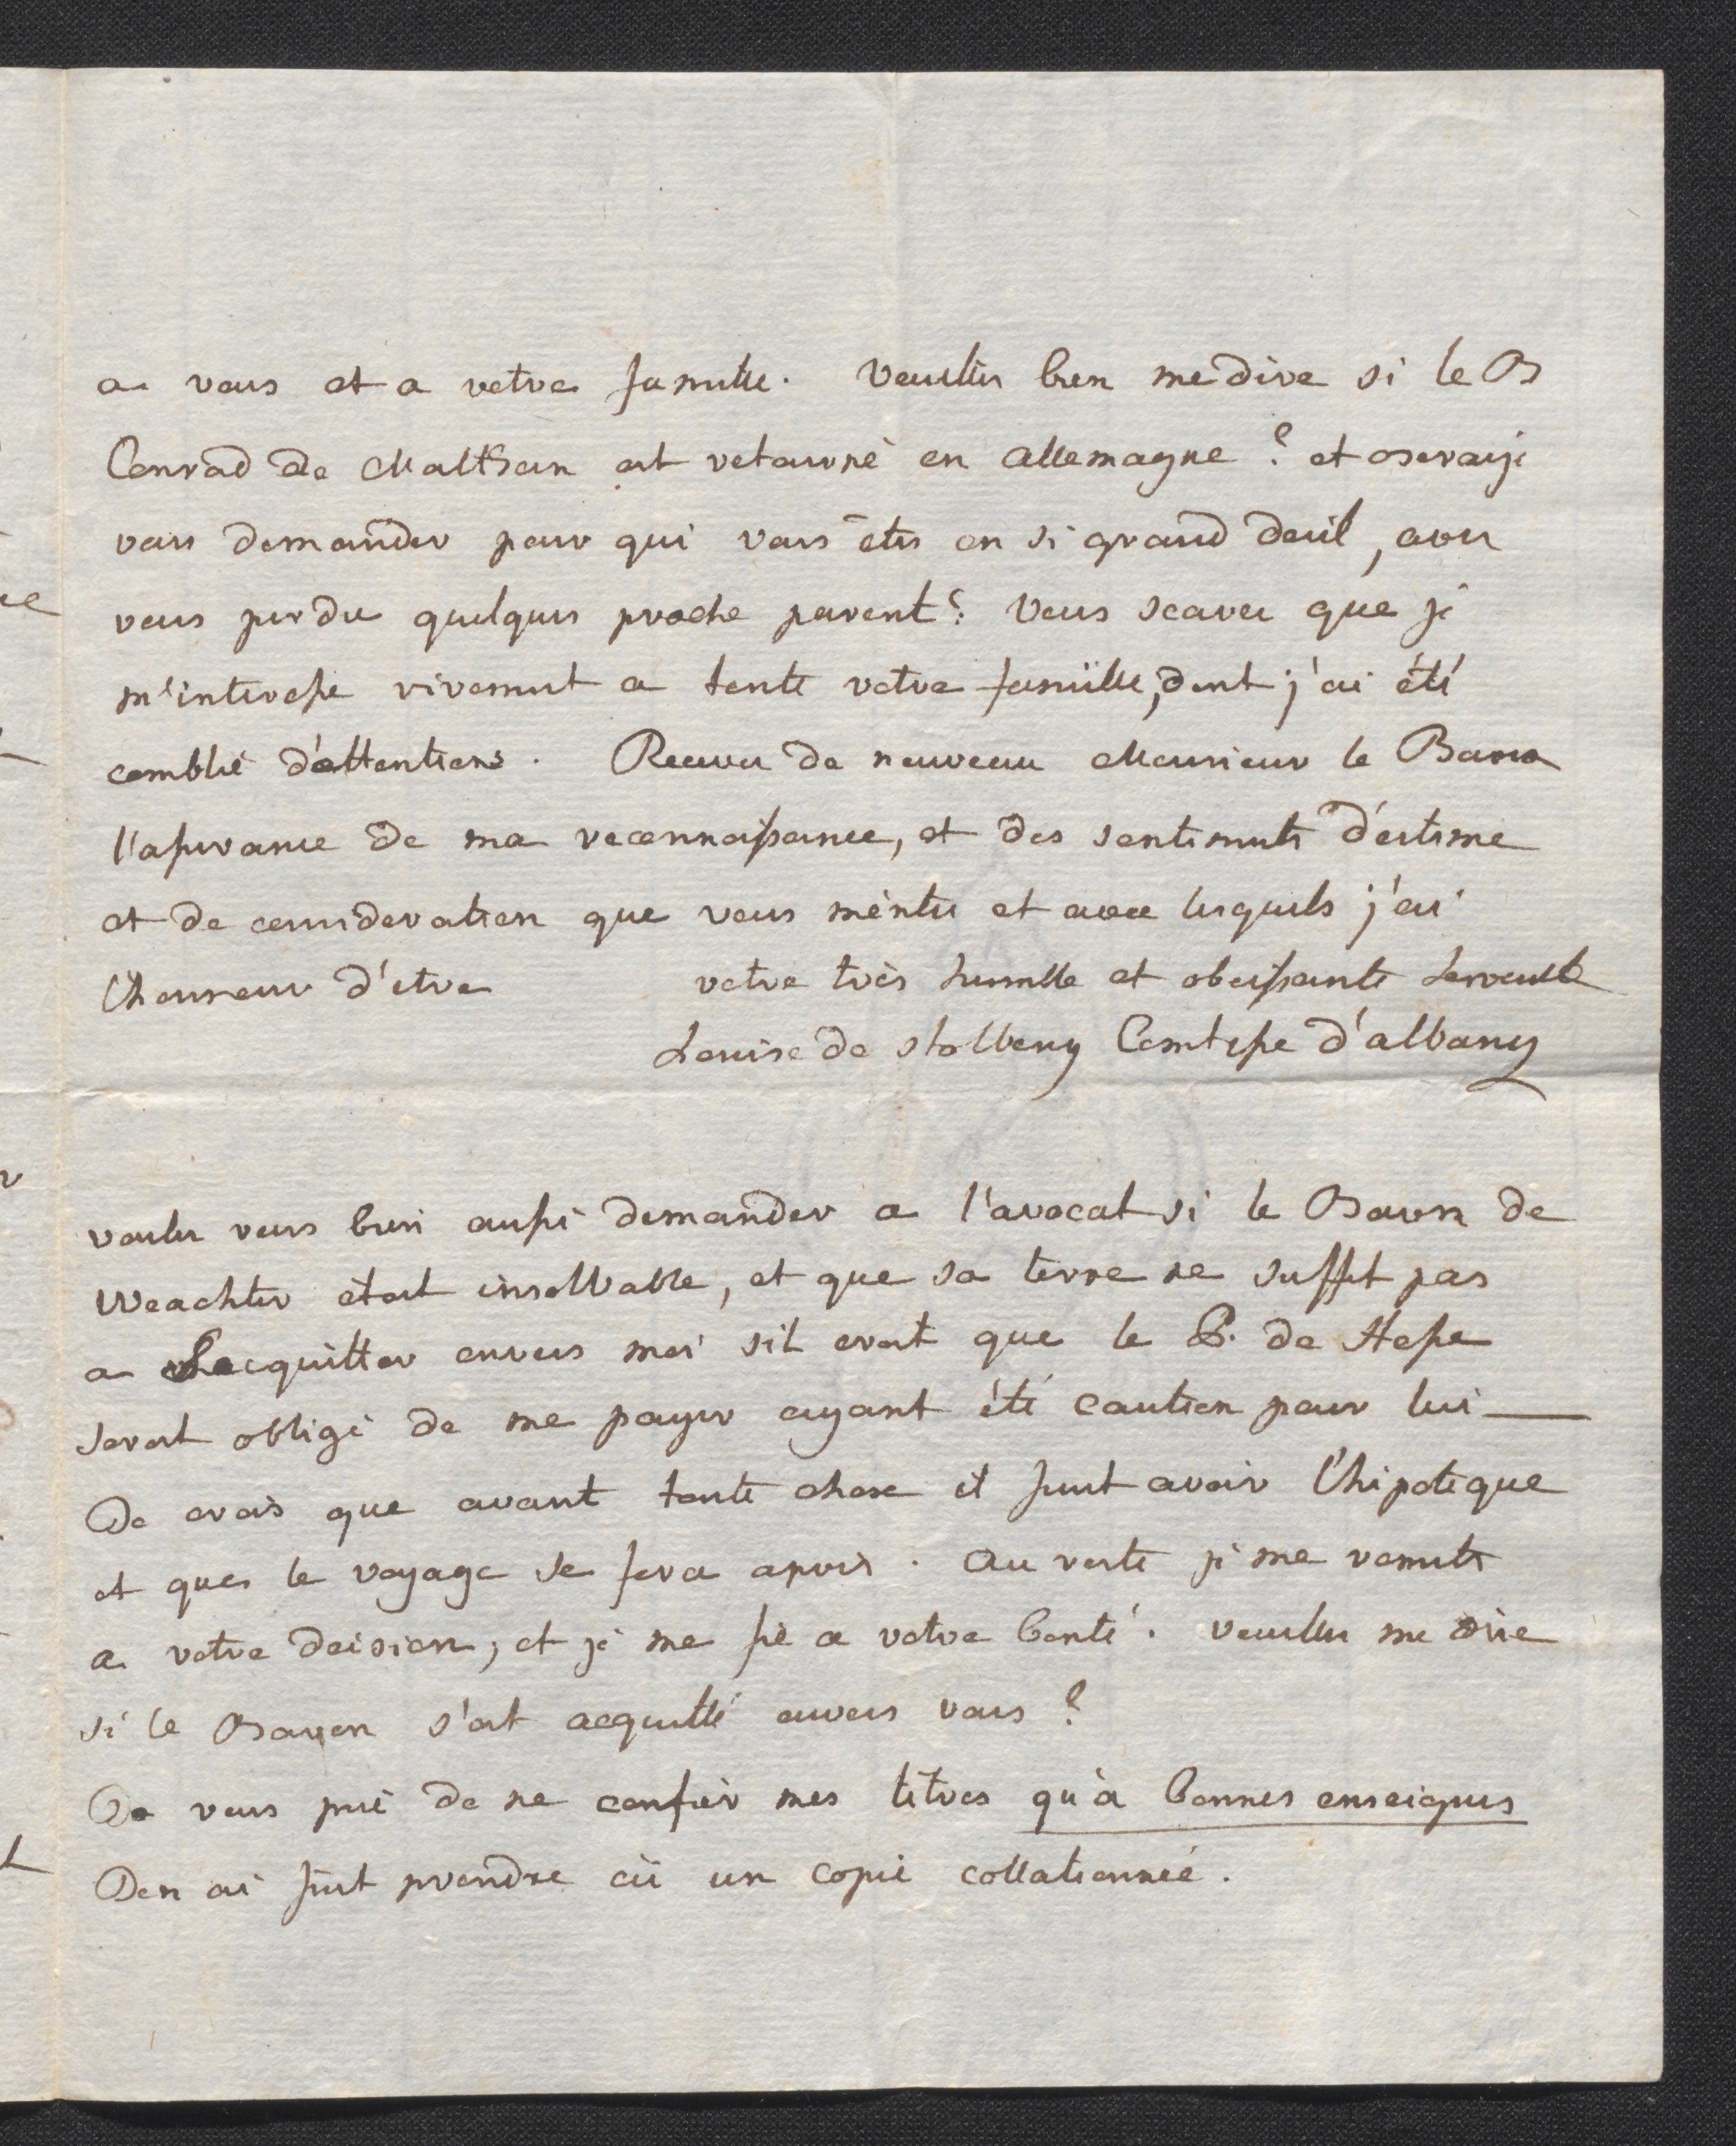 a vous et a votre famille. Veuillés bien me dire si le B
Conrad de Malthan est retourné en Allemagne ? et oseraije
vous demander pour qui vous êtes en si grand deuil, avez
vous perdu quelques proche parent ? Vous scavez que je
m'interesse vivement a toute votre famille, dont j'ai été
comblé d'attentions. Recevez de nouveau Monsieur le Baron
l'assurance de ma reconnaissance, et des sentiments d'estime
et de consideration que vous mérités et avec lesquels j'ai
l'honneur d'etre votre très humble et obeissante Servante
Louise de Stolberg Comtesse d'albany
voulez vous bien aussi demander a l'avocat si le Baron de
Weachter etoit insolvable, et que sa terre ne suffit pas
a s'acquitter envers moi s'il croit que le P. de Hesse
seroit obligé de me payer ayant été caution pour lui —
Je crois que avant toute chose il faut avoir l'hipoteque
et que le voyage se fera après. Au reste je me remets
a votre decision, et je me fie a votre bonté. veuillez me dire
si le Baron s'est acquitté envers vous ?
Je vous prie de ne confier mes titres qu'à bonnes enseignes
J'en ai fait prendre ici un copie collationnée.